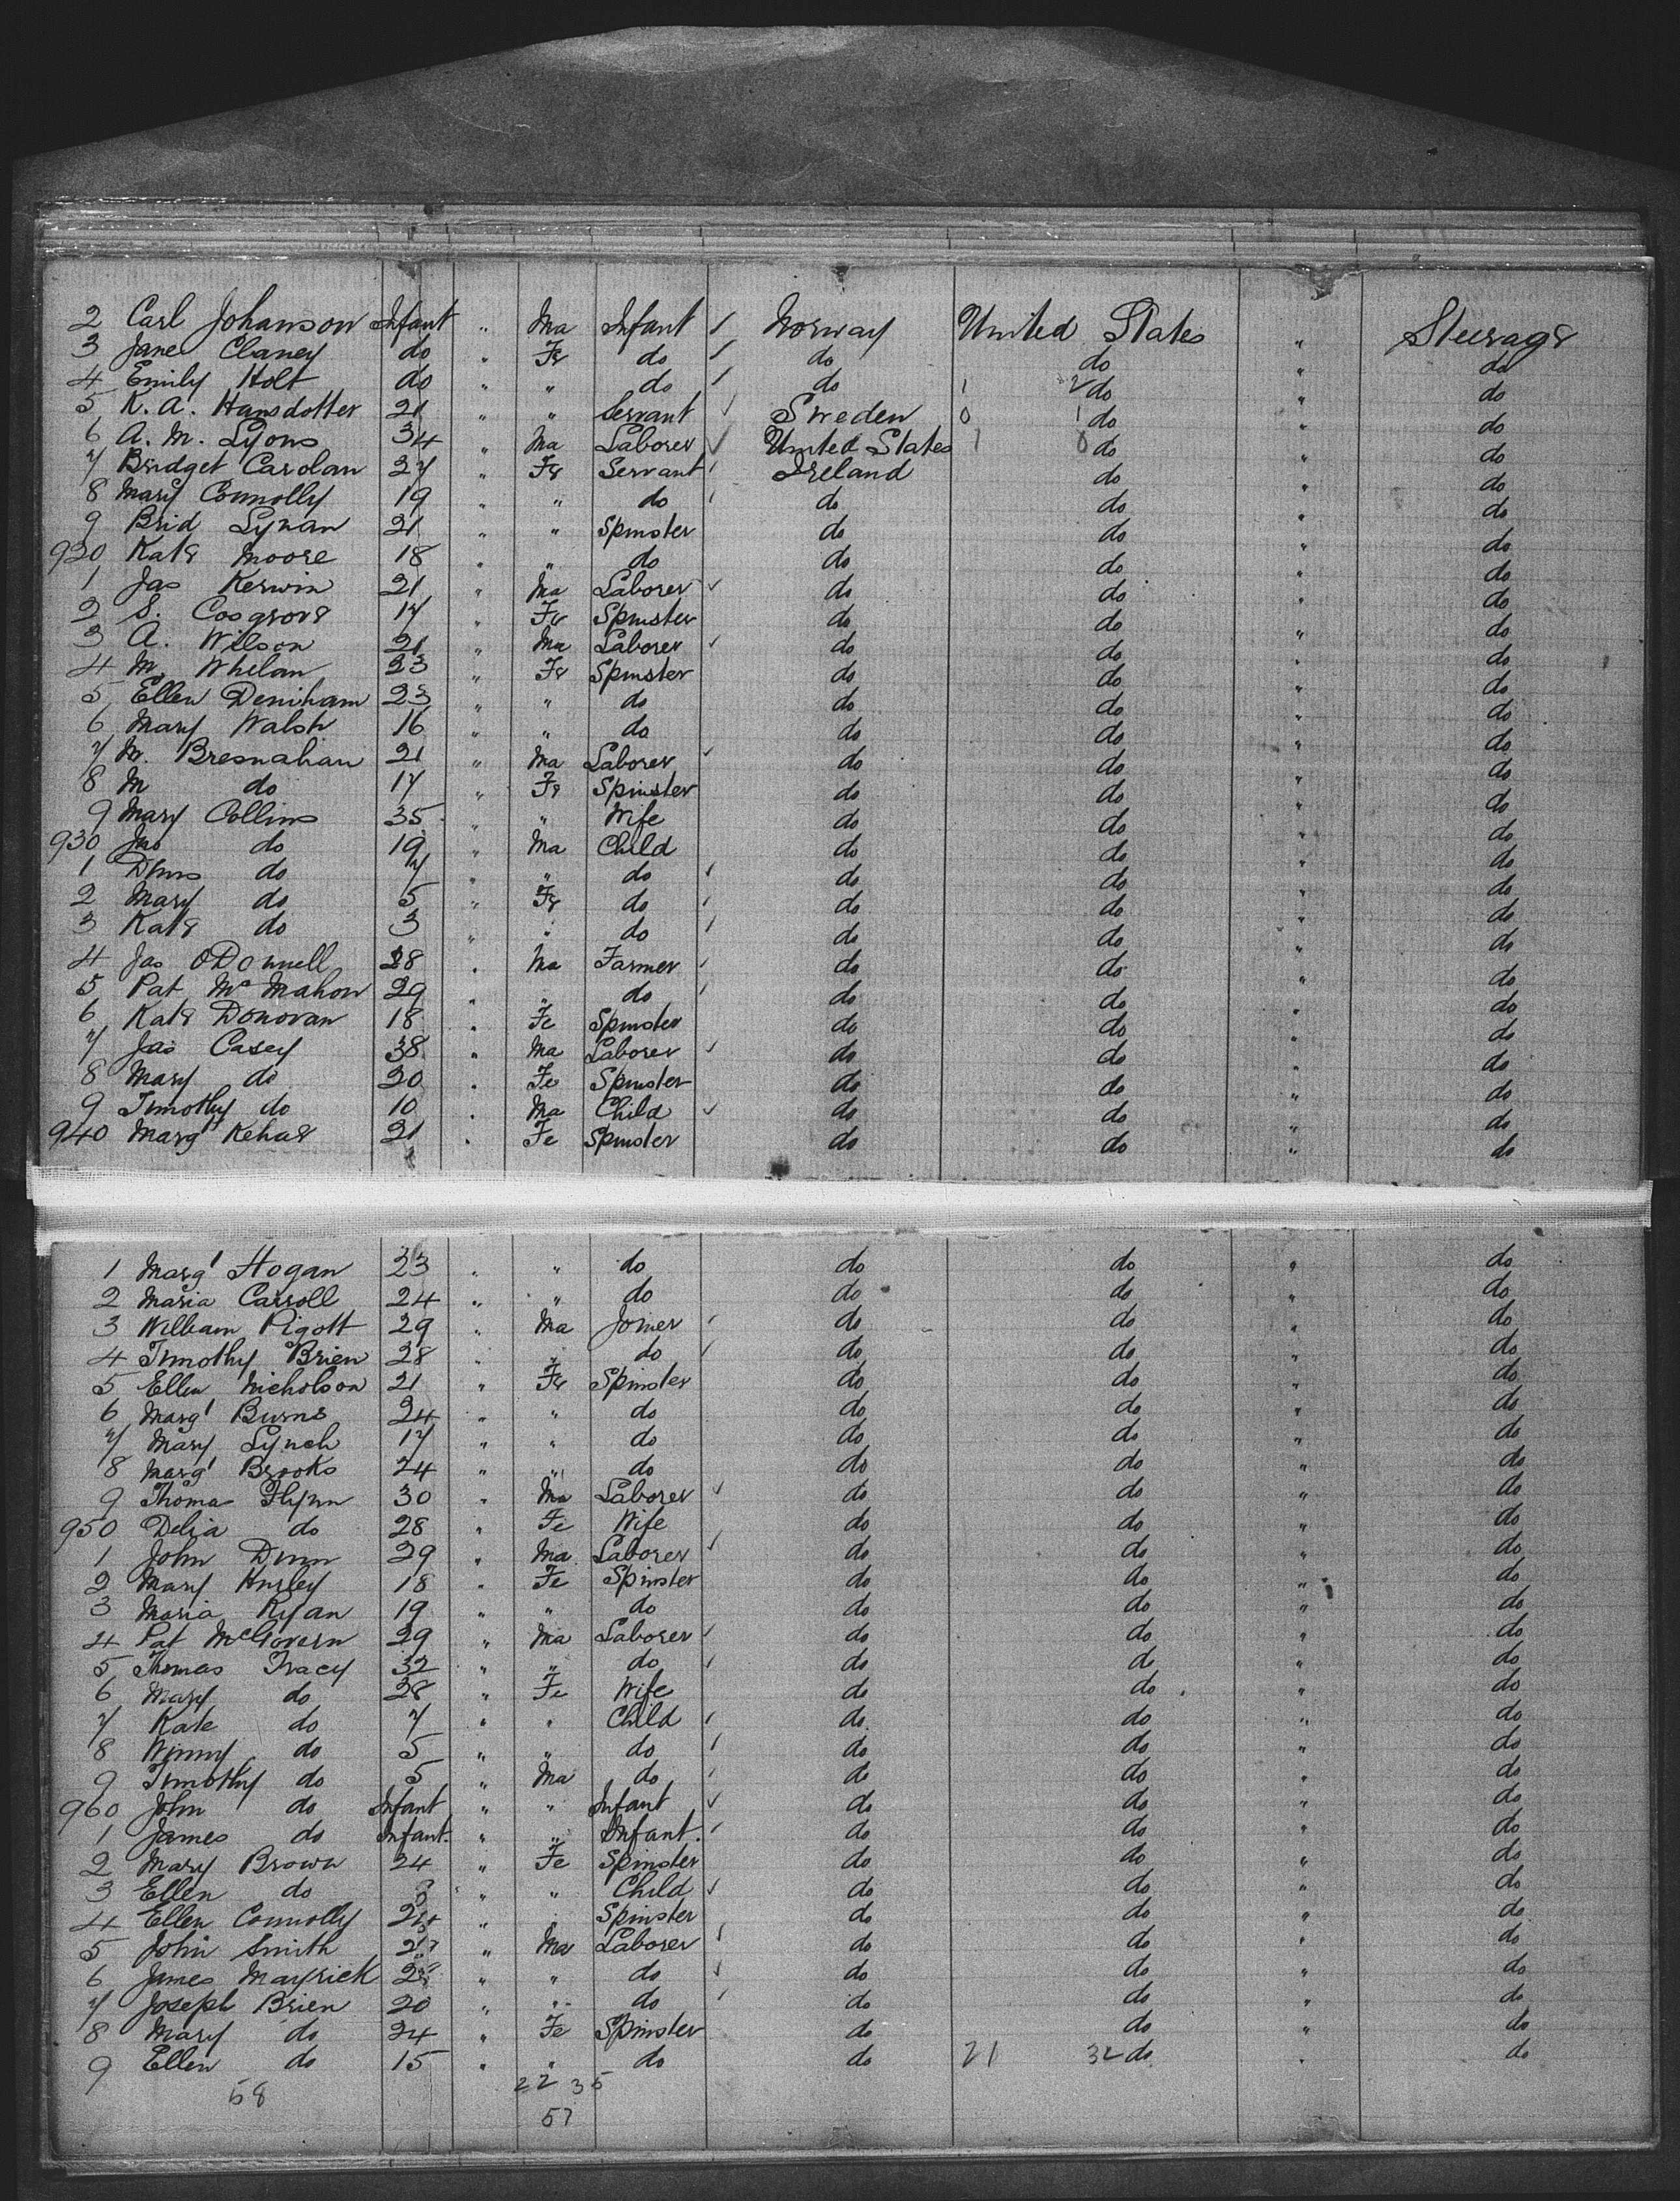 2 Carl Johanson Infant " Ma Infant / Norway United States " Steerage
3 Jane Claney do " Fe do / do do " do
4 Emily Holt do " " do / do 1 2 do " do
5 K. A. Hansdotter 21 " " Servant ✓ Sweden 0 1 do " do
6 A. M. Lyons 34 " Ma Laborer ✓ United States 1 0 do " do
7 Bridget Carolan 27 " Fe Servant / Ireland do " do
8 Mary Connolly 19 " " do / do do " do
9 Brid Lynan 21 " " Spinster do do " do
920 Kate Moore 18 " " do do do " do
1 Jas Kerwin 21 " Ma Laborer ✓ do do " do
2 S. Cosgrove 17 " Fe Spinster do do " do
3 A. Wilson 21 " Ma Laborer ✓ do do " do
4 M Whelan 23 " Fe Spinster do do " do
5 Ellen Deniham 23 " " do do do " do
6 Mary Walsh 16 " " do do do " do
7 M. Bresnahan 21 " Ma Laborer ✓ do do " do
8 M do 17 " Fe Spinster do do " do
9 Mary Collins 35 " " Wife do do " do
930 Jas do 19 " Ma Child do do " do
1 Denis do 7 " " do / do do " do
2 Mary do 5 " Fe do / do do " do
3 Kate do 3 " " do / do do " do
4 Jas ODonnell 28 " Ma Farmer / do do " do
5 Pat McMahon 29 " " do / do do " do
6 Kate Donovan 18 " Fe Spinster do do " do
7 Jas Casey 38 " Ma Laborer ✓ do do " do
8 Mary do 20 " Fe Spinster do do " do
9 Timothy do 10 " Ma Child ✓ do do " do
940 Margt Kehae 21 " Fe Spinster do do " do
1 Margt Hogan 23 " " do do do " do
2 Maria Carroll 24 " " do do do " do
3 William Pigott 29 " Ma Joiner / do do " do
4 Timothy Brien 28 " " do / do do " do
5 Ellen Nicholson 21 " Fe Spinster do do " do
6 Margt Burns 24 " " do do do " do
7 Mary Lynch 17 " " do do do " do
8 Margt Brooks 24 " " do do do " do
9 Thomas Flynn 30 " Ma Laborer ✓ do do " do
950 Delia do 28 " Fe Wife do do " do
1 John Dunn 29 " Ma Laborer ✓ do do " do
2 Mary Hurley 18 " Fe Spinster do do " do
3 Maria Ryan 19 " " do do do " do
4 Pat McGovern 29 " Ma Laborer / do do " do
5 Thomas Tracy 32 " " do / do do " do
6 Mary do 28 " Fe Wife do do " do
7 Kate do 7 " " Child / do do " do
8 Winny do 5 " " do / do do " do
9 Timothy do 5 " Ma do / do do " do
960 John do Infant " " Infant ✓ do do " do
1 James do Infant. " " Infant. / do do " do
2 Mary Brown 24 " Fe Spinster do do " do
3 Ellen do " " Child ✓ do do " do
4 Ellen Connolly 24 " " Spinster do do " do
5 John Smith " Ma Laborer / do do " do
6 James Mayrick " " do ✓ do do " do
7 Joseph Brien 20 " " do / do do " do
8 Mary do 24 " Fe Spinster do do " do
9 Ellen do 15 " " do do 21 32 do " do
58 22 35
57